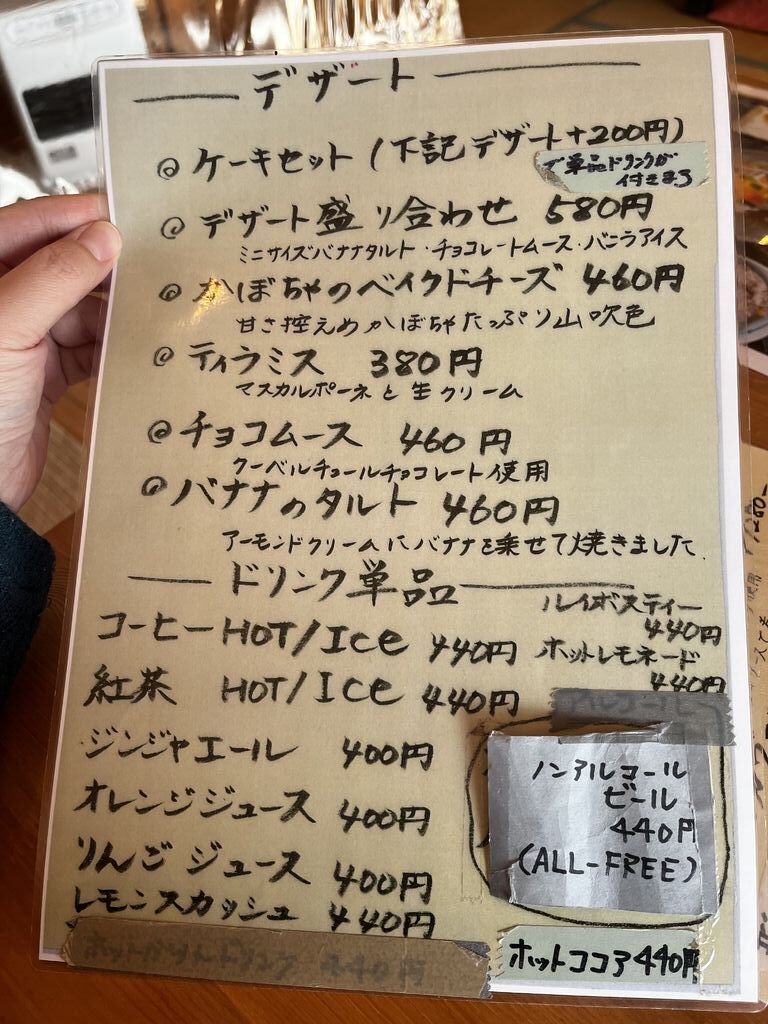 デザート
◎ ケーキセット (下記デザート+200円)
で単品ドリンクが
付きます
◎ デザート盛り合わせ 580円
ミニサイズバナナタルト・チョコレートムース・バニラアイス
◎ かぼちゃのベイクドチーズ 460円
甘さ控えめかぼちゃたっぷり山吹色
◎ ティラミス 380円
マスカルポーネと生クリーム
◎ チョコムース 460円
クーベルチュールチョコレート使用
◎ バナナのタルト 460円
アーモンドクリームにバナナを乗せて焼きました.
ドリンク単品
コーヒー HOT/Ice 440円
紅茶 HOT/Ice 440円
ジンジャエール 400円
オレンジジュース 400円
りんごジュース 400円
レモンスカッシュ 440円
ルイボスティー
440円
ホットレモネード
440円
アルコール
ノンアルコール
ビール
440円
(ALL-FREE)
ホットココア 440円